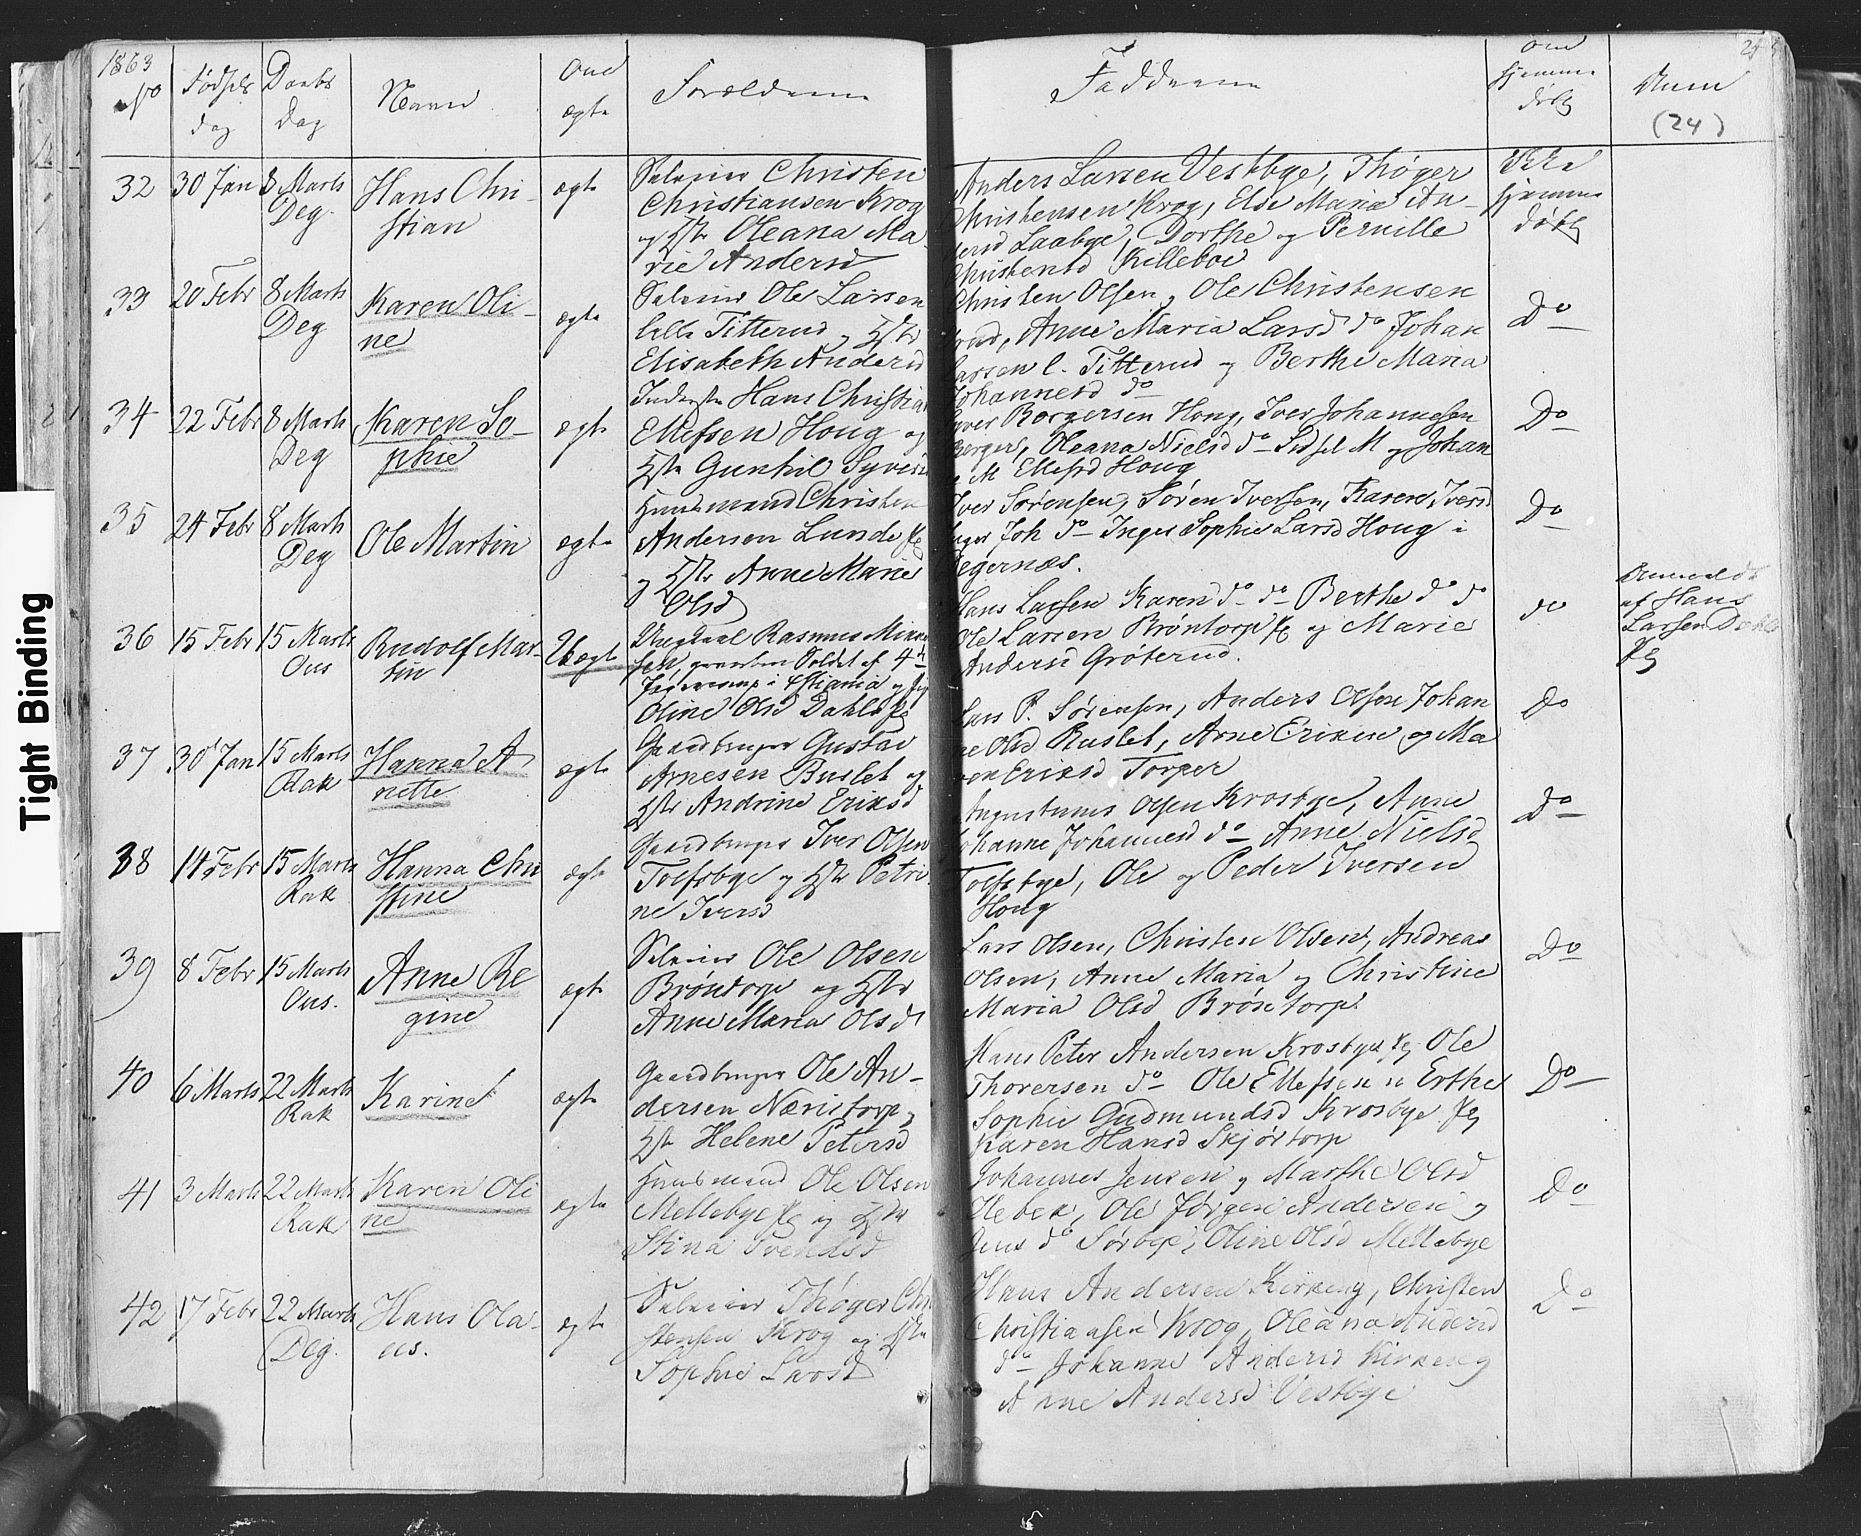 1863
No
Fødsels
dag
Daabs
dag
Navn
Om
ægte
Forældrene
Faddrene
om
hjemme
døbt
Anm
(24)
32
30 Jan
8 Marts
Deg.
Hans Chri-
stian
ægte
Selveier Christen
Christiansen Krog
og Hstr Oleana Ma-
rie Andersd
Anders Larsen Vestbye, Thøger
Christensen Krog, Else Maria An-
dersd Laabye, Dorthe og Pernille
Christensd Killeboe
Ikke
hjemme
døbt
33
20 Febr
8 Marts
Deg
Karen Oli-
ne
ægte
Selveier Ole Larsen
lille Titterud og Hstr
Elisabeth Andersd
Christen Olsen, Ole Christensen
rud, Anne Maria Larsd do Johan
Larsen l. Titterud og Berthe Maria
Johannesd do
Do
34
22 Febr
8 Marts
Deg
Karen So-
phie
ægte
Inderste Hans Christian
Ellefsen Houg og
Hstr Gunhil Syvers
Borgersen Houg, Iver Johannesen
Berger, Oleana Nielsd do Sidsel M og Johan
M Ellefsd Houg
Do
35
24 Febr
8 Marts
Deg
Ole Martin
ægte
Huusmand Christen
Andersen Lunde Eg
og Hstr Anne Marie
Olsd
Iver Sørensen, Søren Iversen, Karen Iversd
Inger Joh do Inger Sophie Larsd Houg i
Degernæs.
Do
36
15 Febr
15 Marts
Ous
Rudolf Mar-
tin
Uægte
Ungkarl Rasmus
sen, Soldat af 4de
Jægercorps i Chstiania og Pige
Oline Olsd Dahle Eg
Hans Larsen Karen do do Berthe do do
Ole Larsen Brøntorp Eg og Marie
Andersd Grøterud.
do
Anmeldt
af Hans
Larsen Dahle
Eg
37
30 Jan
15 Marts
Rak
Hanna A
nette
ægte
Gaardbruger Gustav
Arnesen Buslet og
Hstr Andrine Eriksd
Lars P. Sørensen, Anders Olsen Johan
ne Olsd Buslet, Arne Eriksen og Ma
ren Eriksd Torper
Do
38
14 Febr
15 Marts
Rak
Hanna Chri
stine
ægte
Gaardbruger Iver Olsen
Tolfsbye og Hstr Petri
ne Iversd
Augustinus Olsen Krosbye, Anne
Johanne Johannesd do Anne Nielsd
Tolfsbye, Ole og Peder Iversen
Houg
Do
39
8 Febr
15 Marts
Ous.
Anne Re
gine
ægte
Selveier Ole Olsen
Brøntorp og Hstr
Anne Maria Olsd
Lars Olsen, Christen Olsen, Andreas
Olsen, Anne Maria og Christine
Maria Olsd Brøntorp
Do
40
6 Marts
22 Marts
Rak
Karine
ægte
Gaardbruger Ole An-
dersen Næristorp,
Hstr Helene Petersd
Hans Peter Andersen Krosbye Eg Ole
Thoresen do Ole Ellefsen Erthe
Sophie Gudmundsd Krosbye Eg
Karen Hansd Skjørtorp
Do
41
3 Marts
22 Marts
Rak
Karen Oli
ne
ægte
Huusmand Ole Olsen
Mellebye Eg og Hstr
Stina Svendsd
Johannes Jensen og Marthe Olsd
Hebek, Ole Jørgen Andersen og
Jens do Sørbye, Oline Olsd Mellebye
Do
42
17 Febr
22 Marts
Deg.
Hans Ola-
us.
ægte
Selveier Thøger Chri
stensen Krog og Hstr
Sophie Larsd
Hans Andersen Kirkeng, Christen
Christiansen Krog, Oleana Andersd
do Johanne Andersd Kirkeng
Anne Andersd Vestbye
Do
Tight Binding